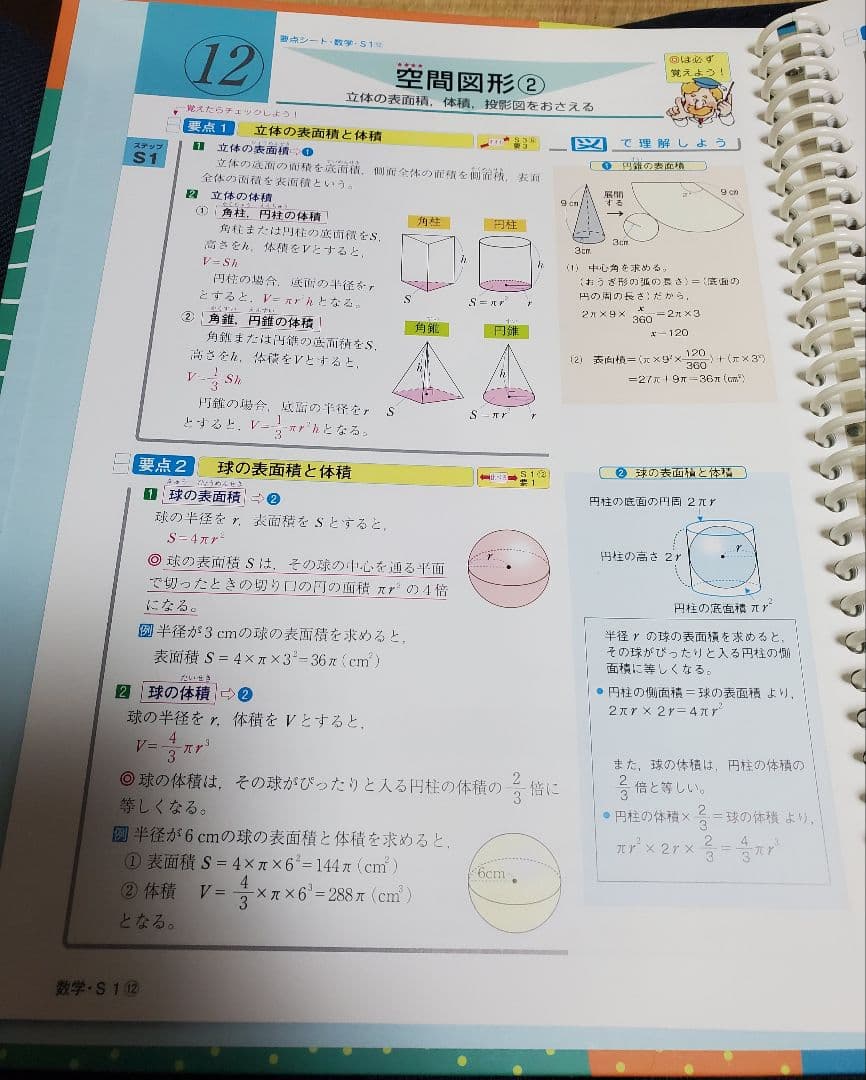 12
要点シート・数学・S1⑫
★★★★
空間図形②
立体の表面積，体積，投影図をおさえる
◎は必ず
覚えよう！
▼覚えたらチェックしよう！
ステップ
S1
要点1 立体の表面積と体積
1 立体の表面積⇨❶
立体の底面の面積を底面積，側面全体の面積を側面積，表面
全体の面積を表面積という。
2 立体の体積
① 角柱，円柱の体積
角柱または円柱の底面積をS，
高さをh，体積をVとすると，
V=Sh
円柱の場合，底面の半径をr
とすると，V=πr²hとなる。
② 角錐，円錐の体積
角錐または円錐の底面積をS，
高さをh，体積をVとすると，
V=1/3Sh
円錐の場合，底面の半径をr
とすると，V=1/3πr²hとなる。
角柱
h
S
円柱
h
S=πr² r
角錐
h
S
円錐
h
S=πr² r
図で理解しよう
❶ 円錐の表面積
9cm
3cm
展開
する
3cm
x°
9cm
(1) 中心角を求める。
(おうぎ形の弧の長さ)=(底面の
円の周の長さ)だから，
2π×9×x/360=2π×3
x=120
(2) 表面積=(π×9²×120/360)+(π×3²)
=27π+9π=36π(cm²)
要点2 球の表面積と体積
S1⑫
要1
1 球の表面積⇨❷
球の半径をr，表面積をSとすると，
S=4πr²
◎球の表面積Sは，その球の中心を通る平面
で切ったときの切り口の円の面積πr²の4倍
になる。
r
例 半径が3cmの球の表面積を求めると，
表面積S=4×π×3²=36π(cm²)
2 球の体積⇨❷
たいせき
球の半径をr，体積をVとすると，
V=4/3πr³
◎球の体積は，その球がぴったりと入る円柱の体積の2/3倍に
等しくなる。
例 半径が6cmの球の表面積と体積を求めると，
① 表面積S=4×π×6²=144π(cm²)
② 体積 V=4/3×π×6³=288π(cm³)
となる。
6cm
❷ 球の表面積と体積
円柱の底面の円周 2πr
円柱の高さ 2r
r
円柱の底面積 πr²
半径rの球の表面積を求めると，
その球がぴったりと入る円柱の側
面積に等しくなる。
●円柱の側面積=球の表面積 より，
2πr×2r=4πr²
また，球の体積は，円柱の体積の
2/3倍と等しい。
●円柱の体積×2/3=球の体積 より，
πr²×2r×2/3=4/3πr³
数学・S1⑫